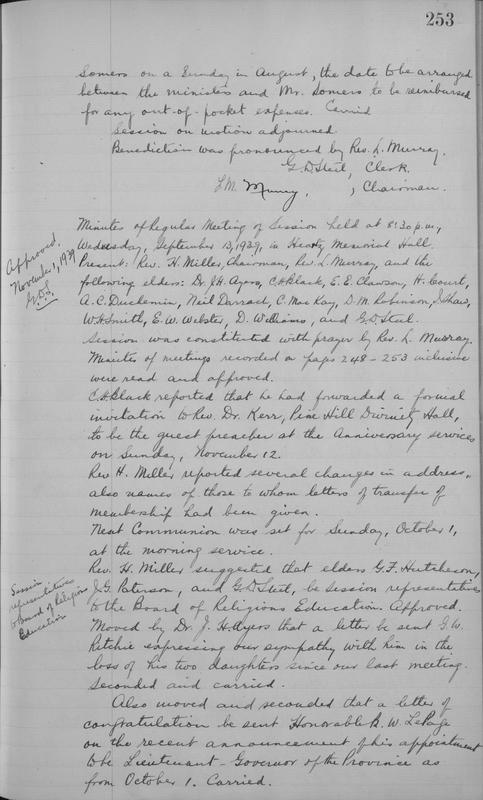 253
Somers on a Sunday in August, the date to be arranged
between the ministers and Mr. Somers to be reimbursed
for any out-of-pocket expenses. Carried
Session on motion adjourned
Benediction was pronounced by Rev. L. Murray.
G. D. Steel, Clerk.
L M. Murray, Chairman.
Approved.
November 1, 1939
G.D.S.
Minutes of Regular Meeting of Session held at 8:30 p.m.,
Wednesday, September 13, 1939, in Heartz Memorial Hall.
Present: Rev. H. Miller, Chairman, Rev. L. Murray, and the
following elders: Dr. J. H. Ayers, C. H. Black, E. E. Clawson, H. Court,
A. C. Duchemin, Neil Darrach, C. MacKay, D. M. Robinson, Shaw,
W. H. Smith, E. W. Webster, D. Williams, and G. D. Steel.
Session was constituted with prayer by Rev. L. Murray.
Minutes of meetings recorded on pages 248-253 inclusive
were read and approved.
C. H. Black reported that he had forwarded a formal
invitation to Rev. Dr. Kerr, Pine Hill Divinity Hall,
to be the guest preacher at the Anniversary services
on Sunday, November 12.
Rev. H. Miller reported several changes in address,
also names of those to whom letters of transfer of
membership had been given.
Next Communion was set for Sunday, October 1,
at the morning service.
Session
representatives
to Board of Religious
Education
Rev. H. Miller suggested that elders G. F. Hutcheson,
J. G. Paterson, and G. D. Steel, be Session representatives
to the Board of Religious Education. Approved.
Moved by Dr. J. H. Ayers that a letter be sent G. W.
Ritchie expressing our sympathy with him in the
loss of his two daughters since our last meeting.
Seconded and carried.
Also moved and seconded that a letter of
congratulation be sent Honorable B. W. LePage
on the recent announcement of his appointment
to be Lieutenant-Governor of the Province as
from October 1. Carried.